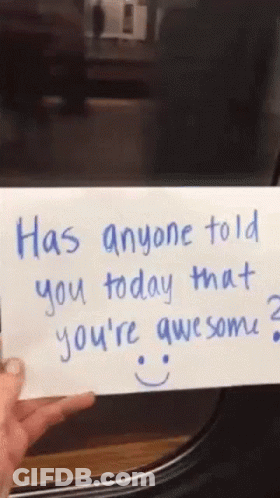 Has anyone told
you today that
you're awesome?
GIFDB.com